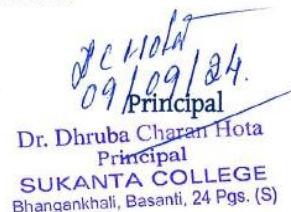 D C Hota
09/09/24.
Principal
Dr. Dhruba Charan Hota
Principal
SUKANTA COLLEGE
Bhangankhali, Basanti, 24 Pgs. (S)